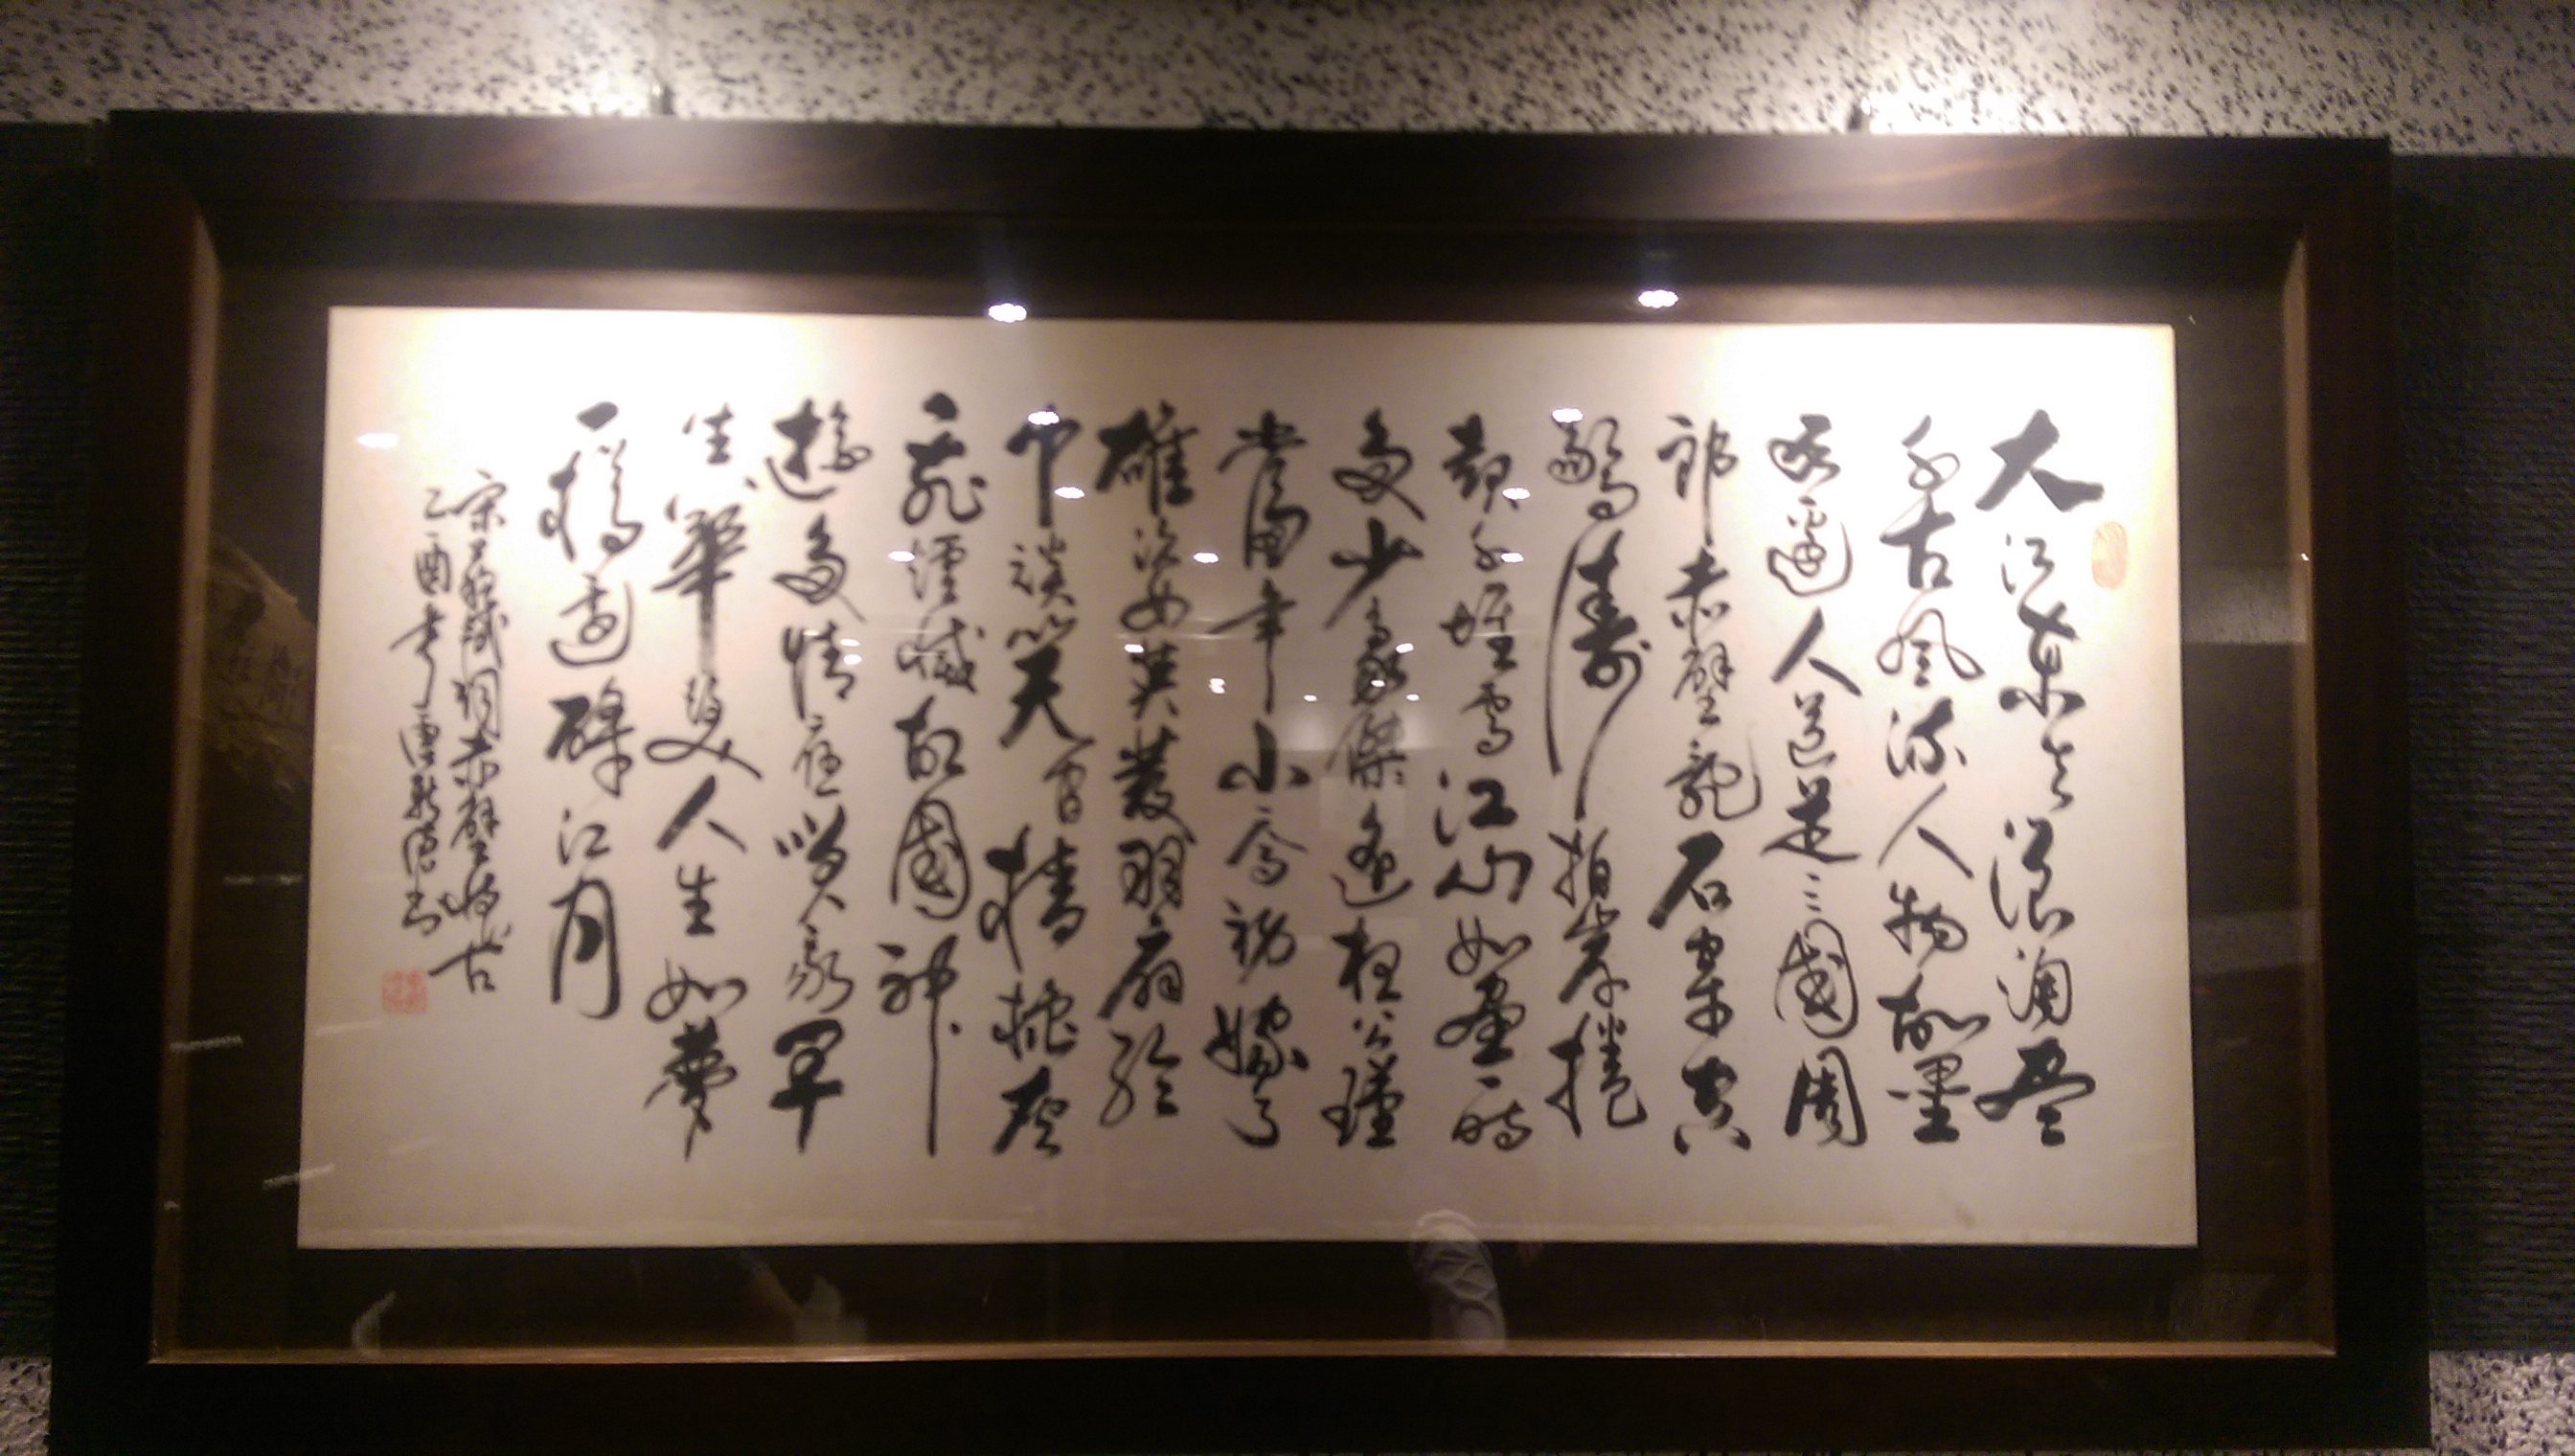 大江東去浪淘盡
千古風流人物故壘
西邊人道是三國周
郎赤壁亂石穿空
驚濤拍岸捲
起千堆雪江山如畫一時
多少豪傑遙想公瑾
當年小喬初嫁了
雄姿英發羽扇綸
巾談笑間檣櫓灰
飛煙滅故國神
遊多情應笑我早
生華髮人生如夢
一樽還酹江月
宋蘇軾詞赤壁懷古
乙酉春